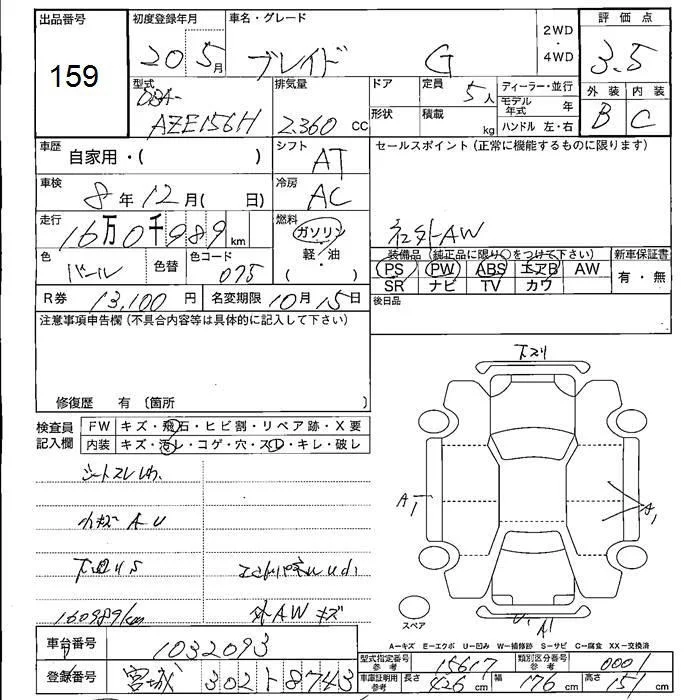 出品番号 初度登録年月 車名・グレード 評価点
159 20 5月 ブレイド G 2WD・4WD 3.5
外装 内装
B C
型式 排気量 ドア 定員 5人 ディーラー・並行
DBA-
AZE156H 2.360 cc 形状 積載 kg モデル年式 年
ハンドル 左・右
車歴 自家用・( ) シフト AT セールスポイント(正常に機能するものに限ります)
車検 8年12月( 日) 冷房 AC
走行 16万0千989km 燃料 ガソリン 社外AW
軽・油
( )
色 パール 色替 色コード 075
装備品(純正品に限り○をつけて下さい) 新車保証書
PS PW ABS エアB AW 有・無
SR ナビ TV カワ
R券 13,100円 名変期限 10月15日 後日品
注意事項申告欄(不具合内容等は具体的に記入して下さい)
修復歴 有 〔箇所
下スリ
検査員記入欄 FW キズ・飛石・ヒビ割・リペア跡・X要
内装 キズ・汚レ・コゲ・穴・スレ・キレ・破レ
シートスレ
小キズ A U
下廻りS
160989km 外AWキズ
A1 A1
スペア U1 A1
A=キズ E=エクボ U=凹み W=補修跡 S=サビ C=腐食 XX=交換済
車台番号 1032093
登録番号 宮城 302 ト 8743
型式指定番号 参考 15617 類別区分番号 参考 0001
車庫証明用 参考 長さ 426cm 幅 176cm 高さ 151cm